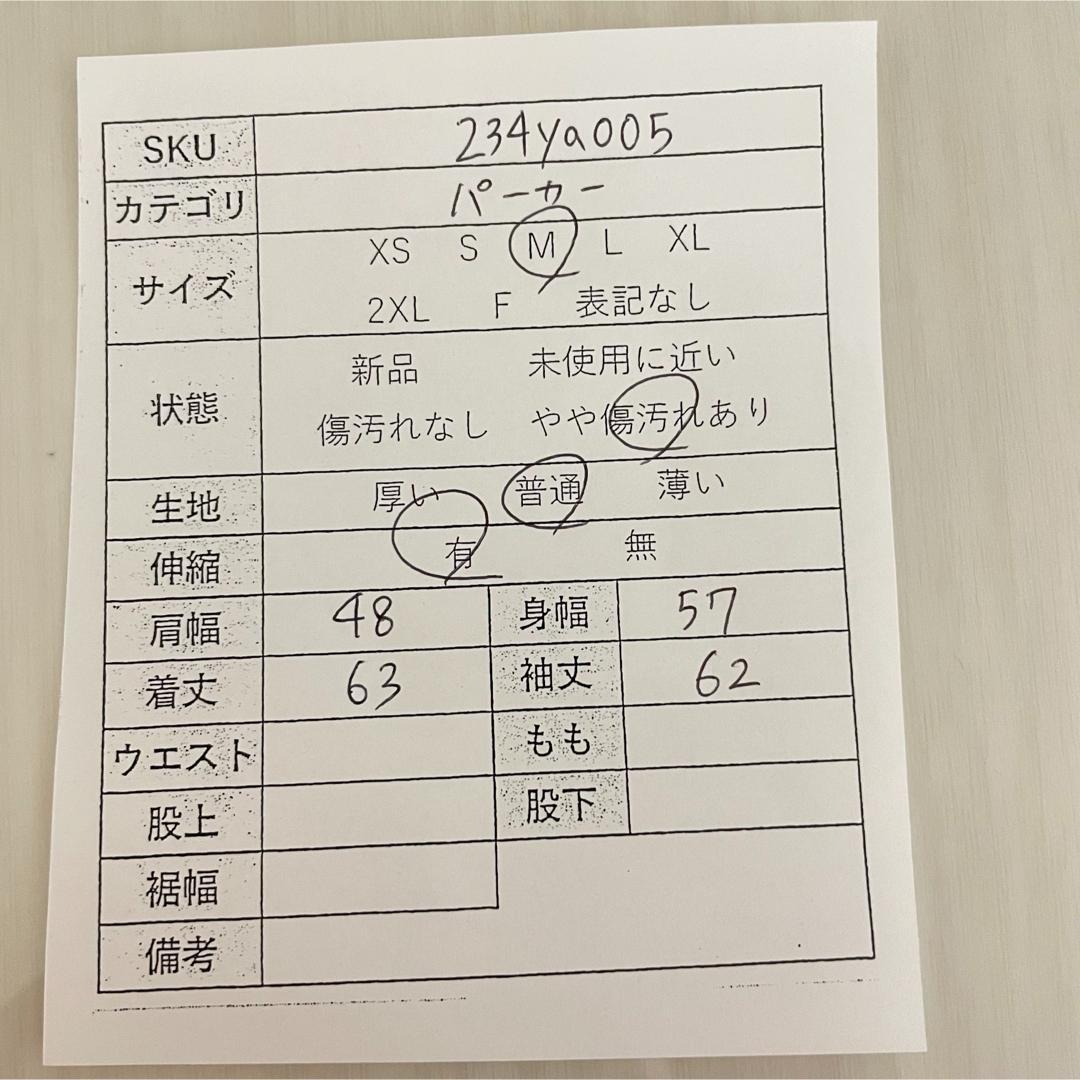 SKU 234ya005
カテゴリ パーカー
サイズ XS S M L XL
2XL F 表記なし
状態 新品 未使用に近い
傷汚れなし やや傷汚れあり
生地 厚い 普通 薄い
伸縮 有 無
肩幅 48 身幅 57
着丈 63 袖丈 62
ウエスト もも
股上 股下
裾幅
備考